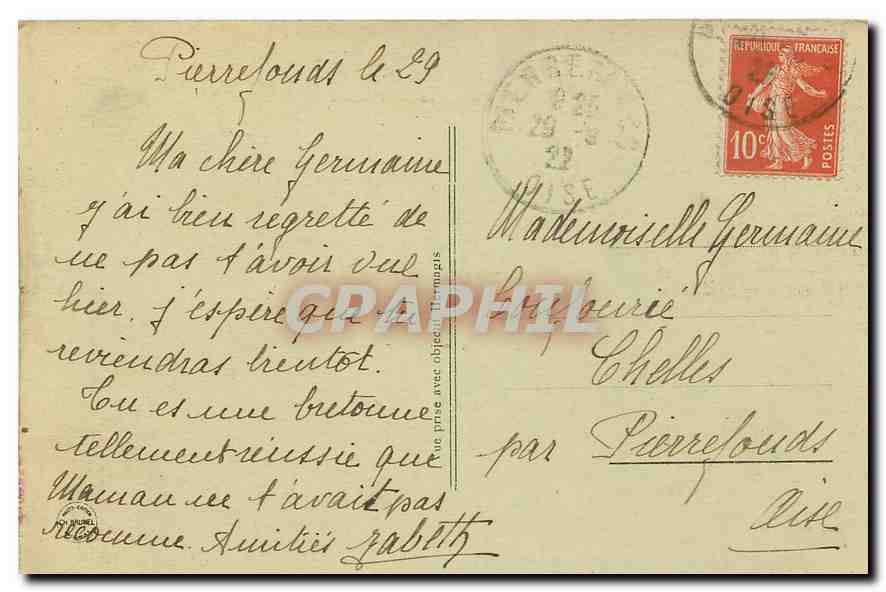 Pierrefonds le 29
Ma chère Germaine
j'ai bien regretté de
ne pas t'avoir vue
hier. j'espère que tu
reviendras bientôt.
Tu es une bretonne
tellement réussie que
Maman ne t'avait pas
reconnue. Amitiés Zabeth
CH. BRUNEL
Vue prise avec objectif Hermagis
OISE
25
29
22
OISE
REPUBLIQUE FRANÇAISE
10c
POSTES
Mademoiselle Germaine
Chelles
par Pierrefonds
Oise
CPAPHIL